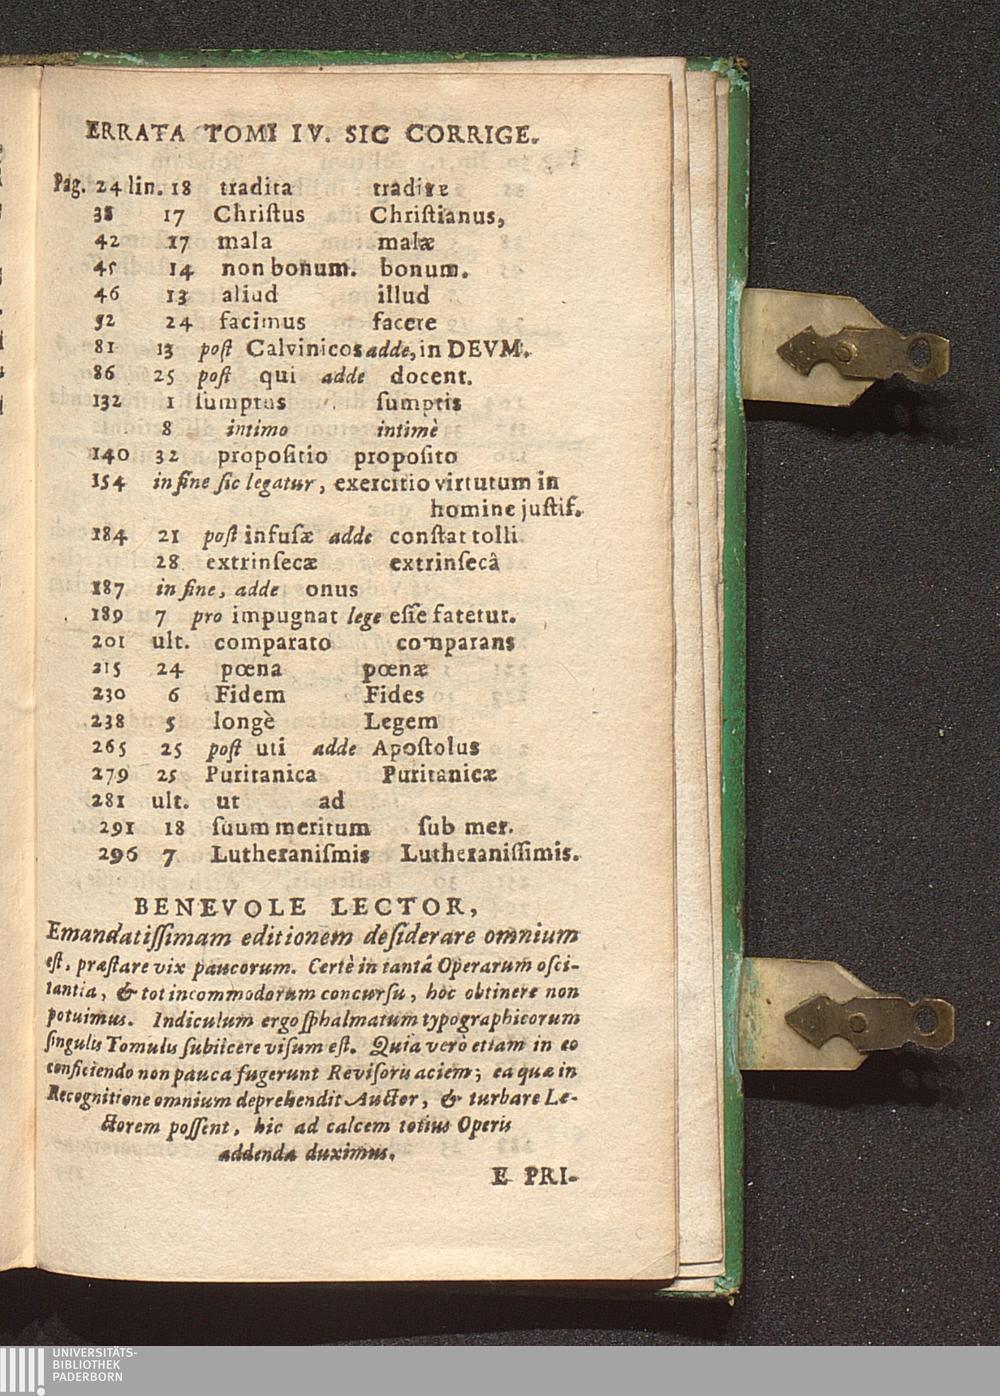 ERRATA TOMI IV. SIC CORRIGE.
Pag. 24 lin. 18 tradita traditæ
38 17 Chriſtus Chriſtianus,
42 17 mala malæ
45 14 non bonum. bonum.
46 13 aliud illud
52 24 facimus facere
81 13 poſt Calvinicos adde, in DEVM.
86 25 poſt qui adde docent.
132 1 ſumptus ſumptis
8 intimo intimè
140 32 propoſitio propoſito
154 in fine ſic legatur, exercitio virtutum in
homine juſtif.
184 21 poſt infuſæ adde conſtat tolli
28 extrinſecæ extrinſecâ
187 in fine, adde onus
189 7 pro impugnat lege eſſe fatetur.
201 ult. comparato comparans
215 24 pœna pœnæ
230 6 Fidem Fides
238 5 longè Legem
265 25 poſt uti adde Apoſtolus
279 25 Puritanica Puritanicæ
281 ult. ut ad
291 18 ſuum meritum ſub mer.
296 7 Lutheraniſmis Lutheraniſſimis.
BENEVOLE LECTOR,
Emandatiſſimam editionem deſiderare omnium
eſt, præſtare vix paucorum. Certè in tantâ Operarum oſci-
tantia, & tot incommodorum concurſu, hoc obtinere non
potuimus. Indiculum ergo ſphalmatum typographicorum
ſingulis Tomulis ſubiicere viſum eſt. Quia verò etiam in eo
conficiendo non pauca fugerunt Reviſoris aciem; ea quæ in
Recognitione omnium deprehendit Auctor, & turbare Le-
ctorem poſſent, hic ad calcem totius Operis
addenda duximus.
E PRI-
UNIVERSITÄTS-
BIBLIOTHEK
PADERBORN